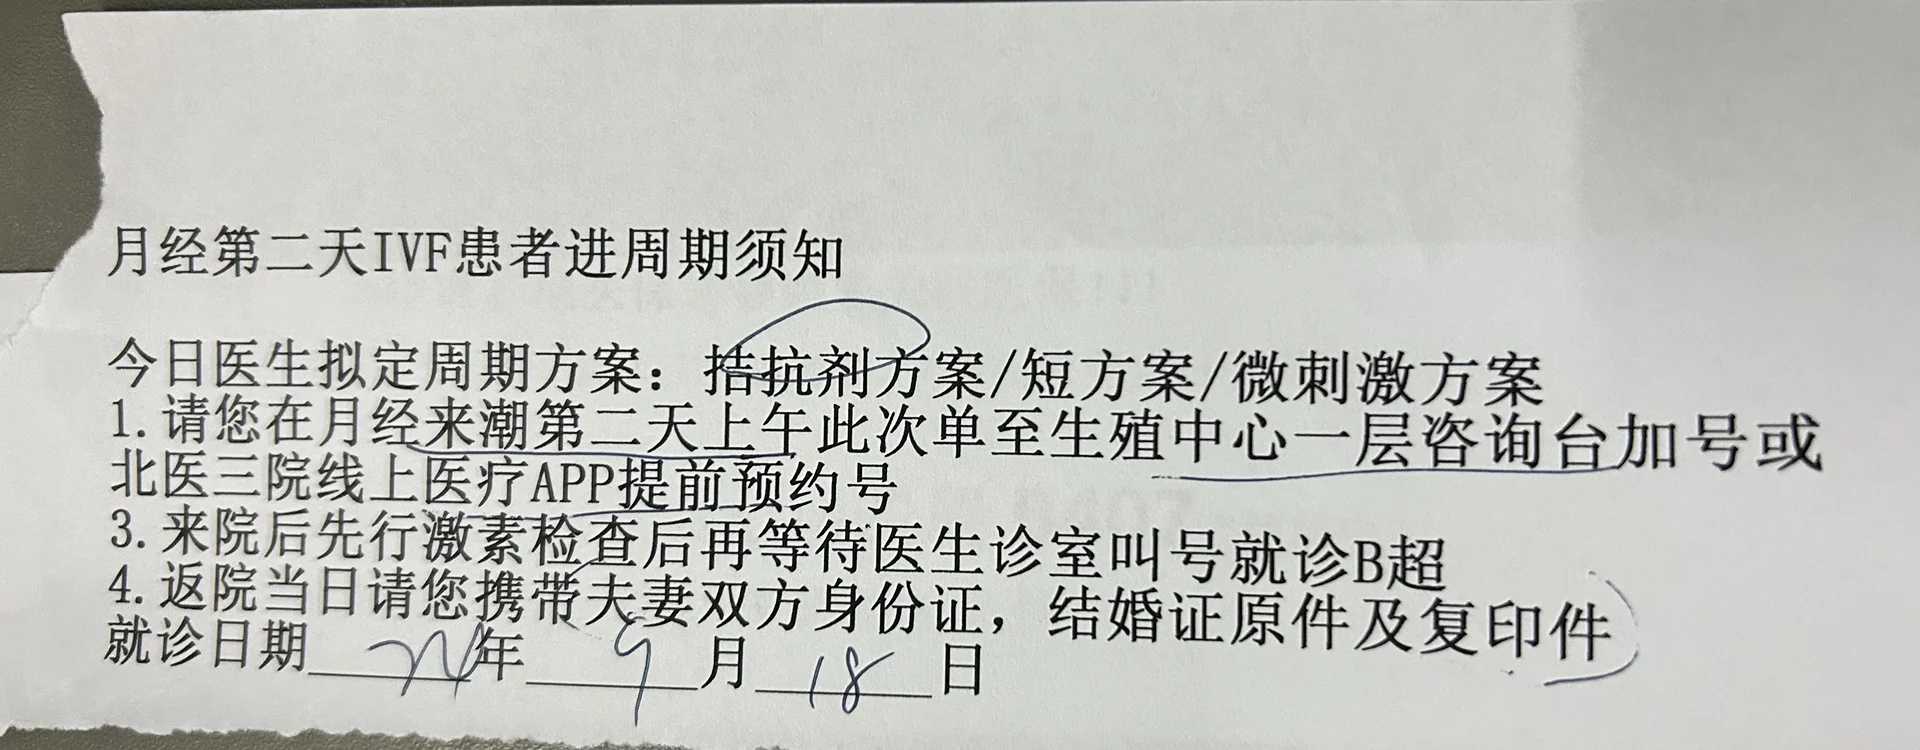 月经第二天IVF患者进周期须知
今日医生拟定周期方案：拮抗剂方案/短方案/微刺激方案
1.请您在月经来潮第二天上午此次单至生殖中心一层咨询台加号或
北医三院线上医疗APP提前预约号
3.来院后先行激素检查后再等待医生诊室叫号就诊B超
4.返院当日请您携带夫妻双方身份证，结婚证原件及复印件
就诊日期 年 9 月 18 日